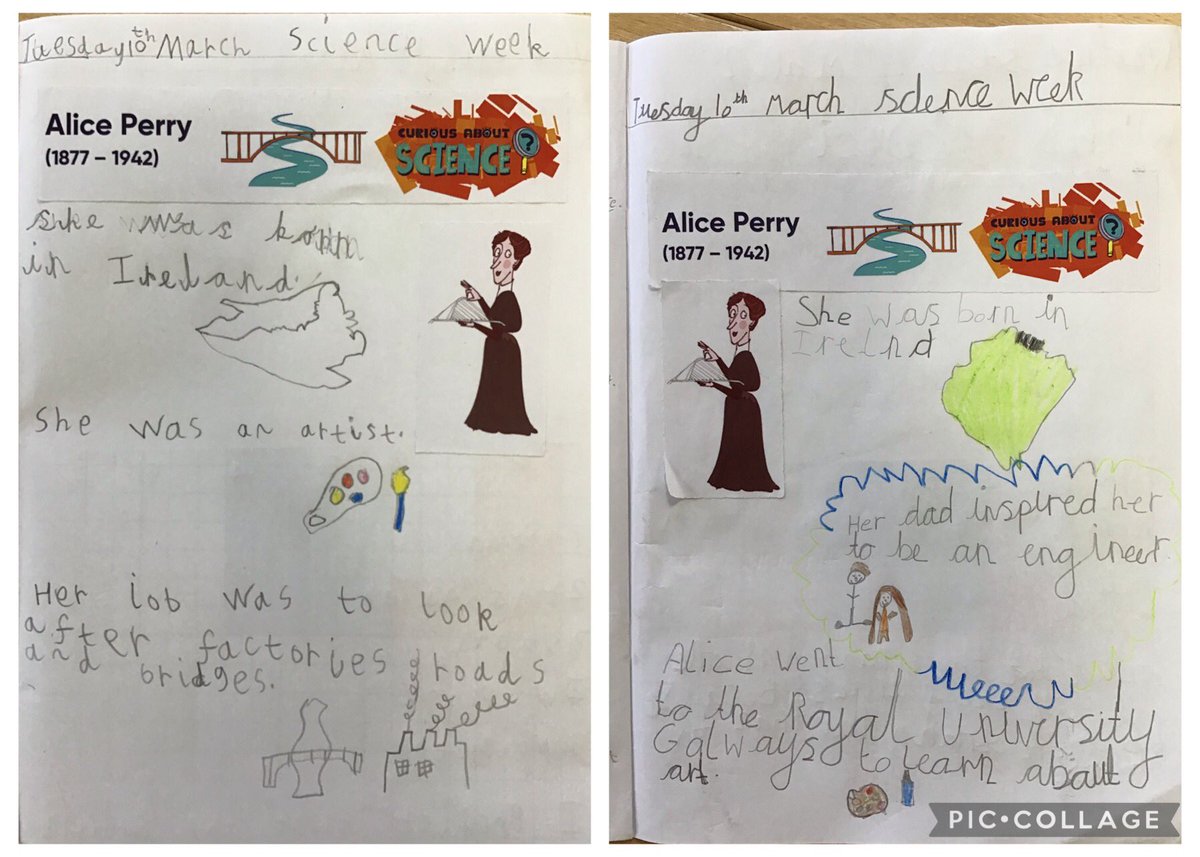 Tuesday 10th March Science Week
Alice Perry
(1877 – 1942)
CURIOUS ABOUT
SCIENCE
She was born
in Ireland.
She was an artist.
Her job was to look
after factories roads
and bridges.
Tuesday 10th March science Week
Alice Perry
(1877 – 1942)
CURIOUS ABOUT
SCIENCE
She was born in
Irelnd
Her dad inspired her
to be an engineer.
Alice went
to the Royal University
Galways to learn about
art.
PIC•COLLAGE